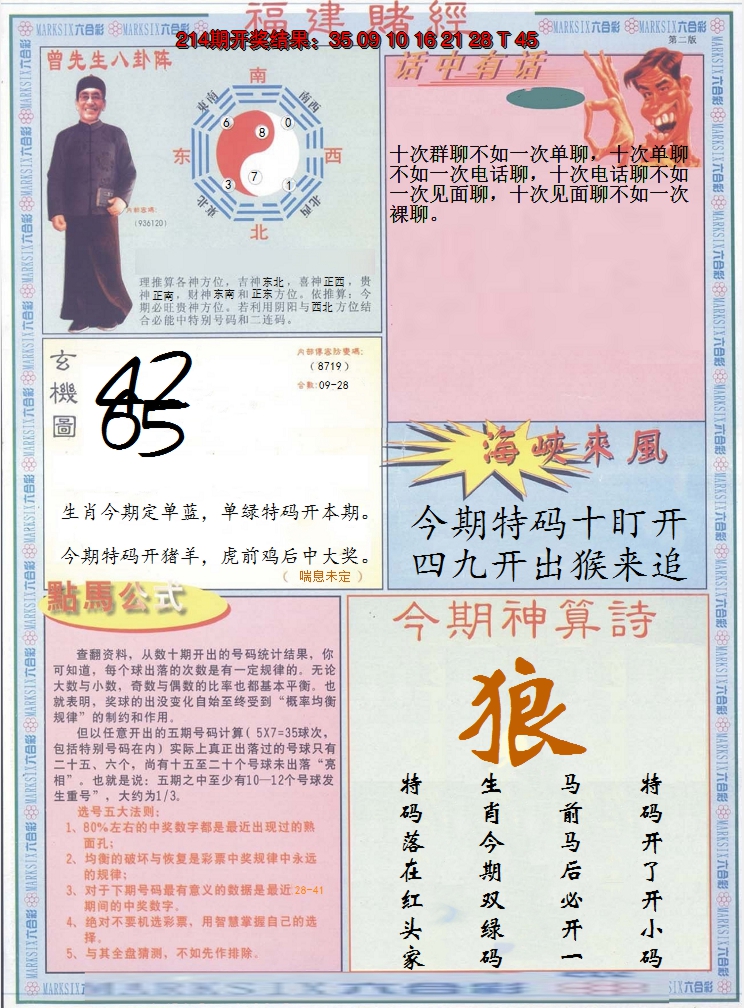 福建賭經
214期开奖结果：35 09 10 16 21 28 T 45
第二版
MARKSIX六合彩
曾先生八卦陈
南
东南
西南
东
西
东北
西北
北
6
8
0
3
7
1
内部密碼：
（936120）
理推算各神方位，吉神东北，喜神正西，贵
神正南，财神东南和正东方位。依推算：今
期必旺贵神方位。若利用阴阳与西北方位结
合必能中特别号码和二连码。
话中有话
十次群聊不如一次单聊，十次单聊
不如一次电话聊，十次电话聊不如
一次见面聊，十次见面聊不如一次
裸聊。
玄機圖
42
65
（8719）
合数：09-28
生肖今期定单蓝，单绿特码开本期。
今期特码开猪羊，虎前鸡后中大奖。
（ 喘息未定 ）
海峽來風
今期特码十盯开
四九开出猴来追
點馬公式
查翻资料，从数十期开出的号码统计结果，你
可知道，每个球出落的次数是有一定规律的。无论
大数与小数，奇数与偶数的比率也都基本平衡。也
就表明，奖球的出没变化自始至终受到“概率均衡
规律”的制约和作用。
但以任意开出的五期号码计算（5X7=35球次，
包括特别号码在内）实际上真正出落过的号球只有
二十五、六个，尚有十五至二十个号球未出落“亮
相”。也就是说：五期之中至少有10—12个号球发
生重号”，大约为1/3。
选号五大法则：
1、80%左右的中奖数字都是最近出现过的熟
面孔；
2、均衡的破坏与恢复是彩票中奖规律中永远
的规律；
3、对于下期号码最有意义的数据是最近28-41
期间的中奖数字。
4、绝对不要机选彩票，用智慧掌握自己的选
择。
5、与其全盘猜测，不如先作排除。
今期神算詩
狼
特码开了开小码
马前马后必开一
生肖今期双绿码
特码落在红头家